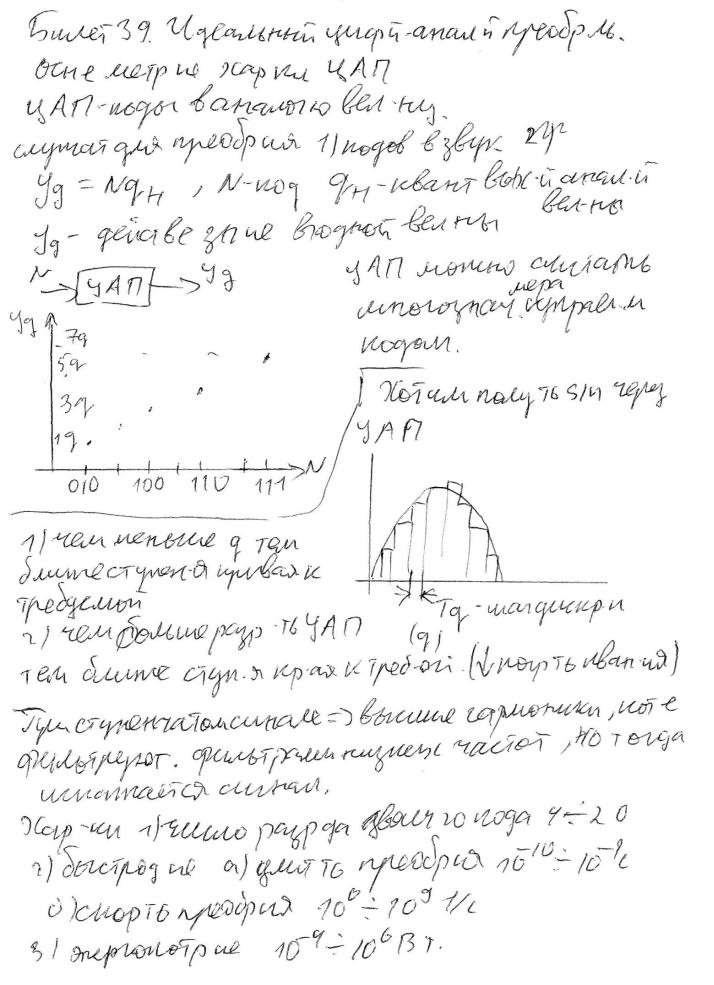 Билет 39. Идеальный цифй-аналй преобрль.
Осне метрие харки ЦАП
ЦАП-коды в аналогю вел-ну.
служат для преобрия 1) кодов в звук
Yg = NqH , N-код qH-квант вых-й анал.й вел-ны
Yg - действе зние входной велны
N ЦАП Yg
ЦАП можно считать
многознач. мера управл.м
кодом.
Yg
7q
5q
3q
1q
010 100 110 111 N
Хотим полуть sin через
ЦАП
Tq - шаг дискри
(q)
1) чем меньше q тем
ближе ступен-я кривая к
требуемой
2) чем больше разр-ть ЦАП
тем ближе ступ.я кр-ая к требой. (↓ погрть кван-ия)
При ступенчатом сигнале => высшие гармоники, котe
фильтруют. фильтрами низких частот, но тогда
искажается сигнал.
Хар-ки 1) число разрда двоичго кода 4÷20
2) быстрдие а) длитть преобрия 10^-10÷10^-1 с
б) скорть преобрия 10^0÷10^9 1/с
3) энергопотрие 10^-9÷10^6 Вт.